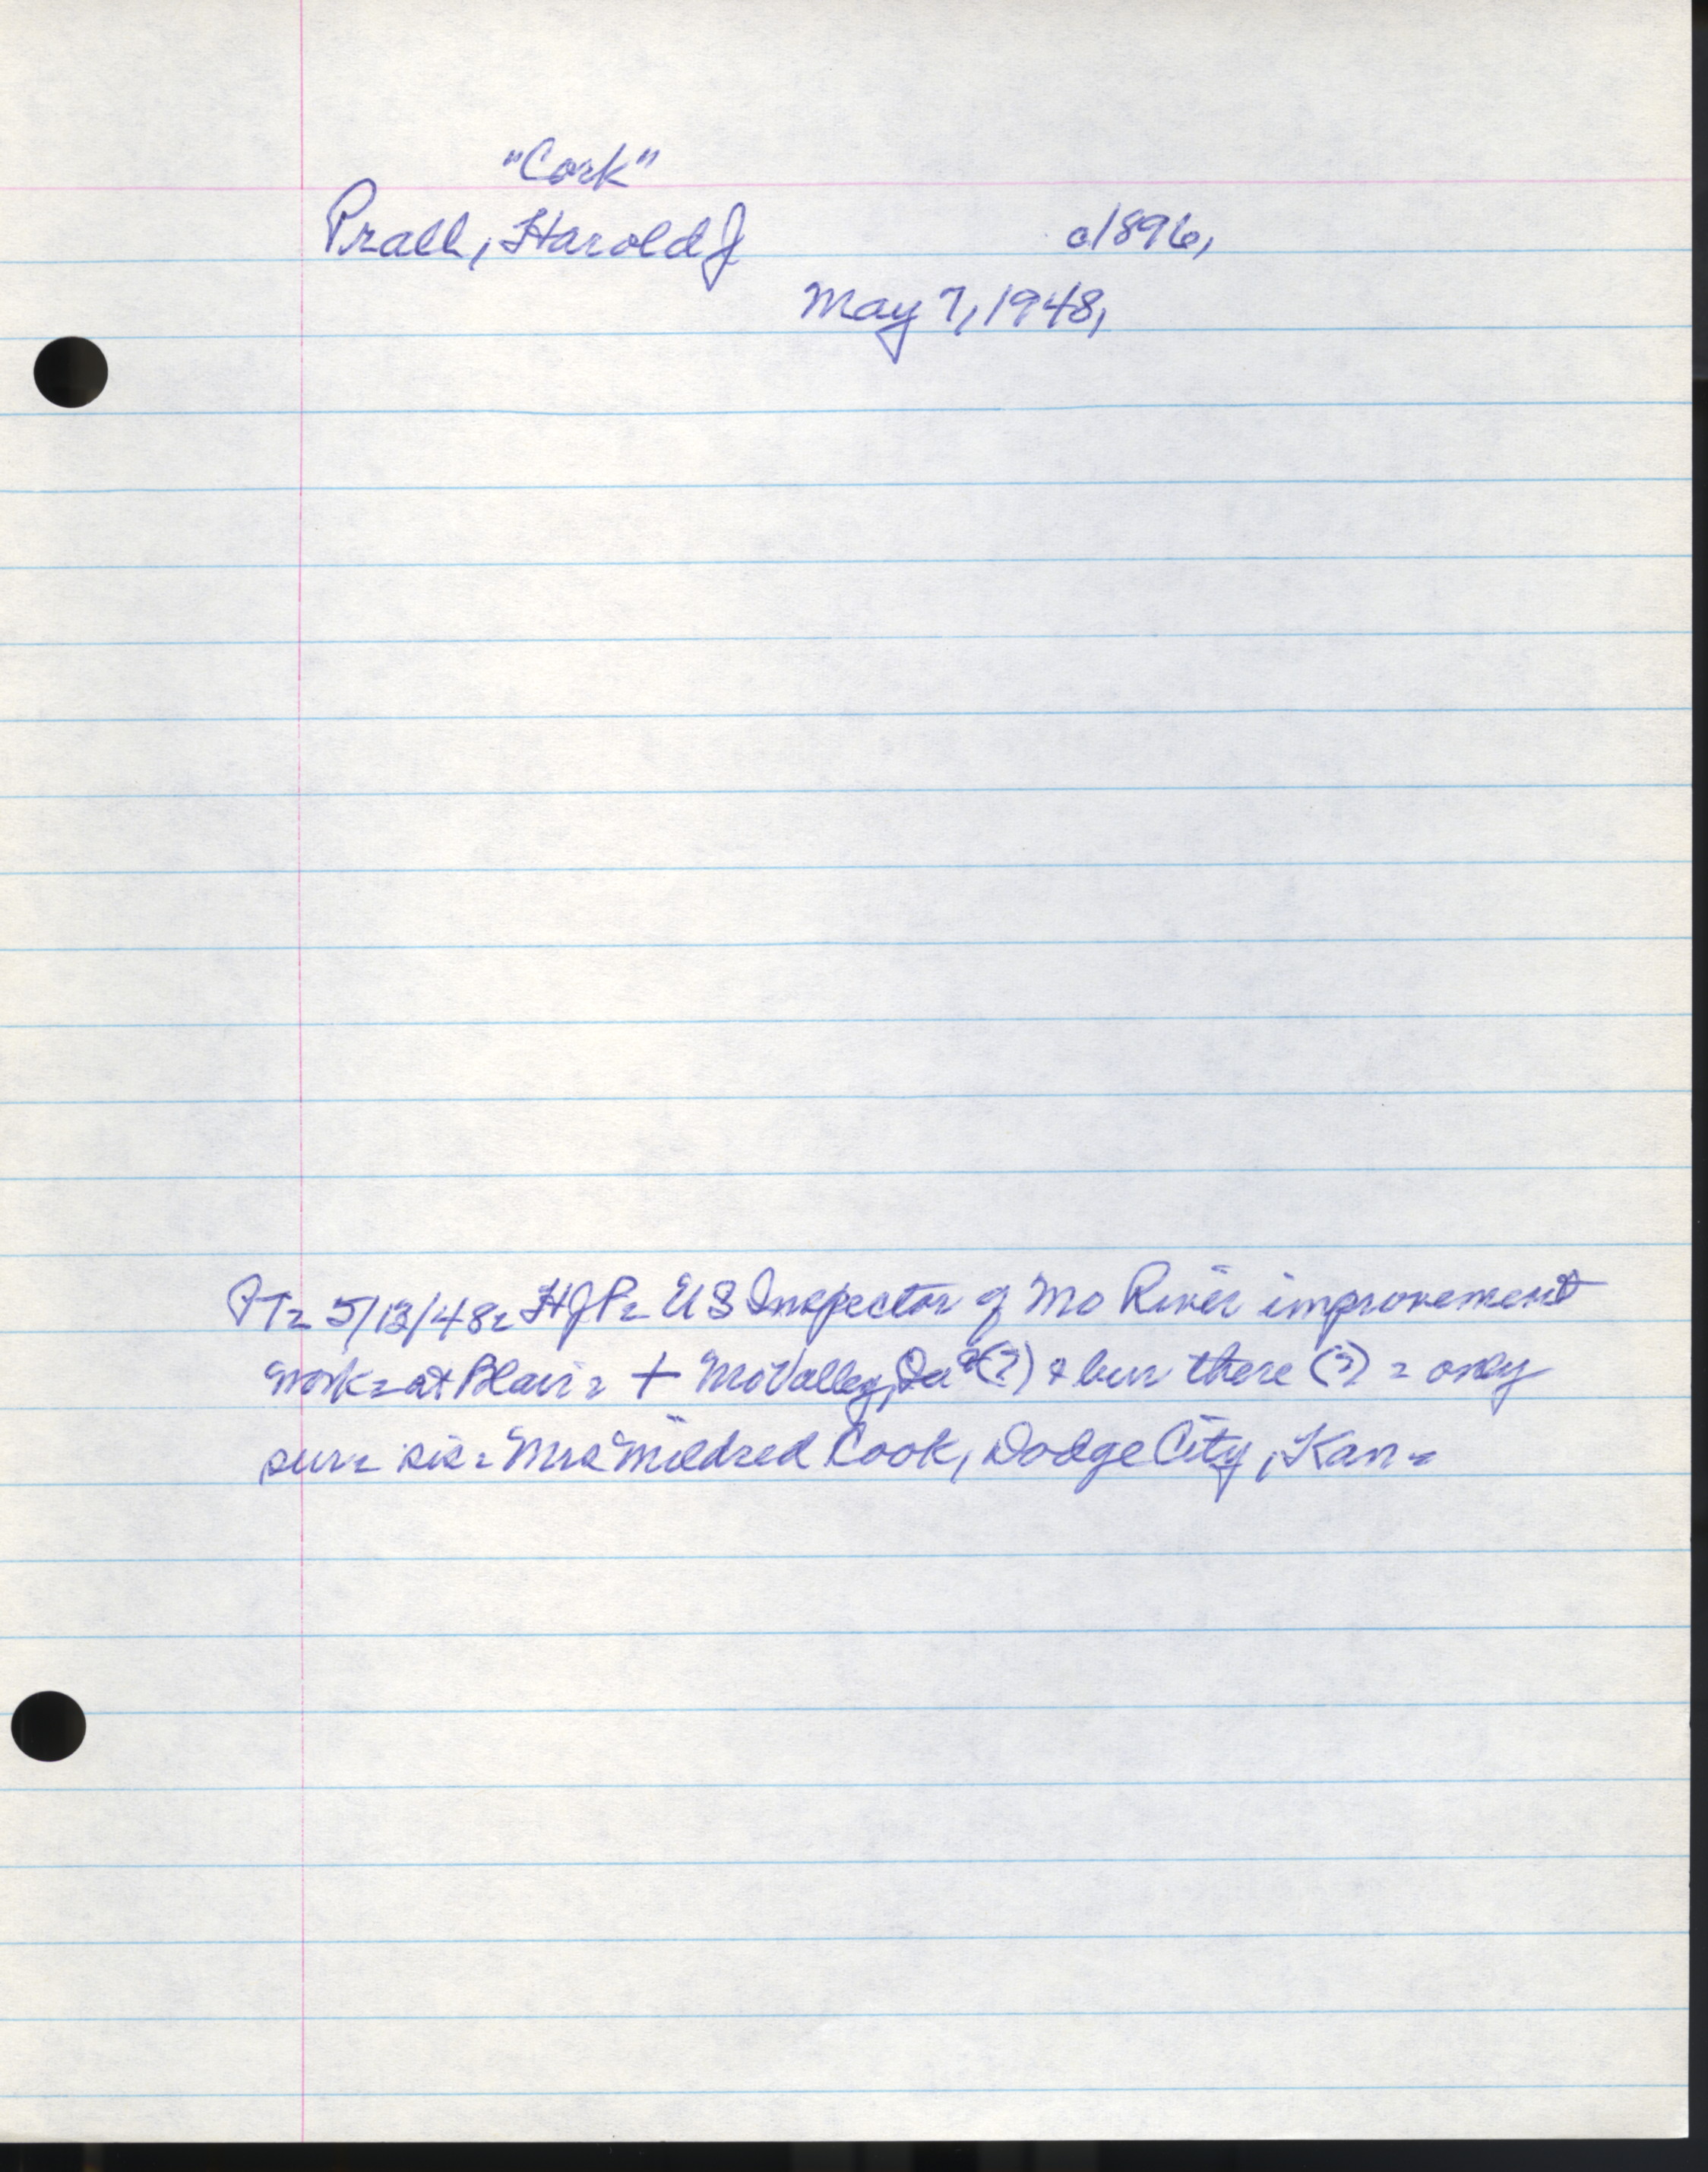 "Cork"
Prall, Harold J c1896,
May 7, 1948,
PT= 5/13/48= HJP= US Inspector of Mo River improvement
work= at Blair= + Mo Valley, Ia (?) & bur there (?) = only
surv= sis= Mrs Mildred Cook, Dodge City, Kan=